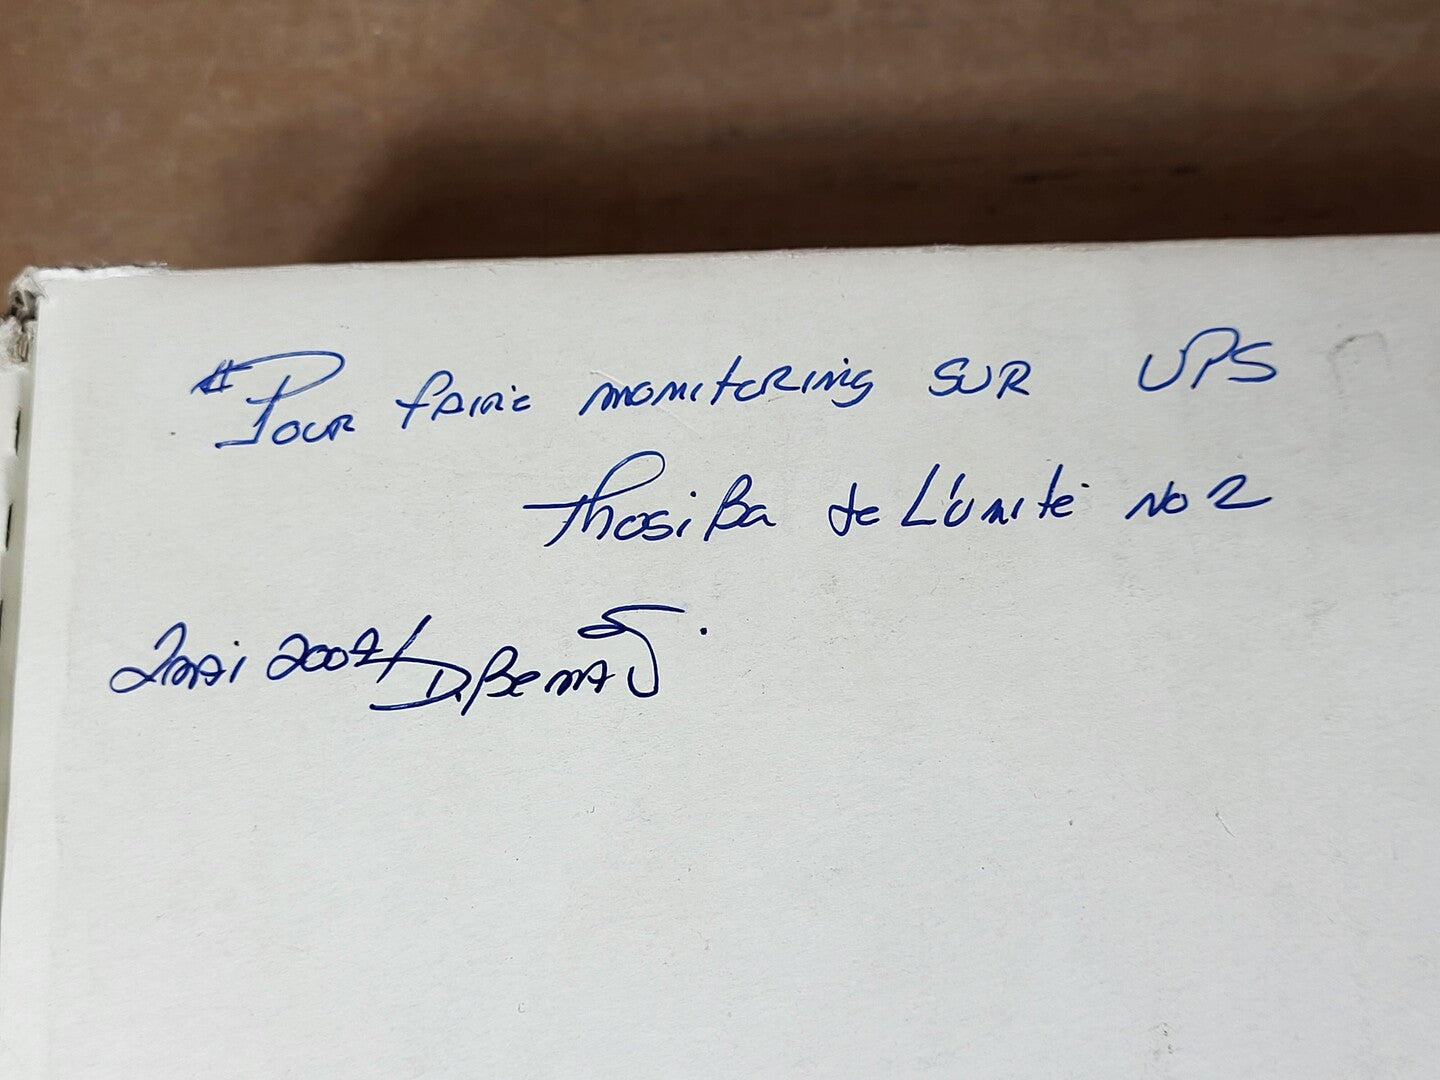 # Pour faire monitoring sur UPS
Thosiba de L'unité No 2
2 mai 2007/